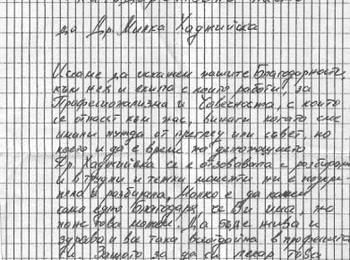 до Др. Милка Хаджийска
Искаме да искажем нашите благодарности
към нея и екипа с които работи, за
Професионализма и съвестта, с които
се отнасят към нас, винаги когато сме
имали нужда от преглед или съвет, по
което и да е време на денонощието
Др. Хаджийска се е отзовавала с разбиране
и в трудни и тежки моменти ни е
и разбирала, Малко е да кажем
само едно Благодаря че Ви има, но
поне това можем. Да бъде жива и
здрава и все така всеотдайна в професията
си. Защото за да си лекар това